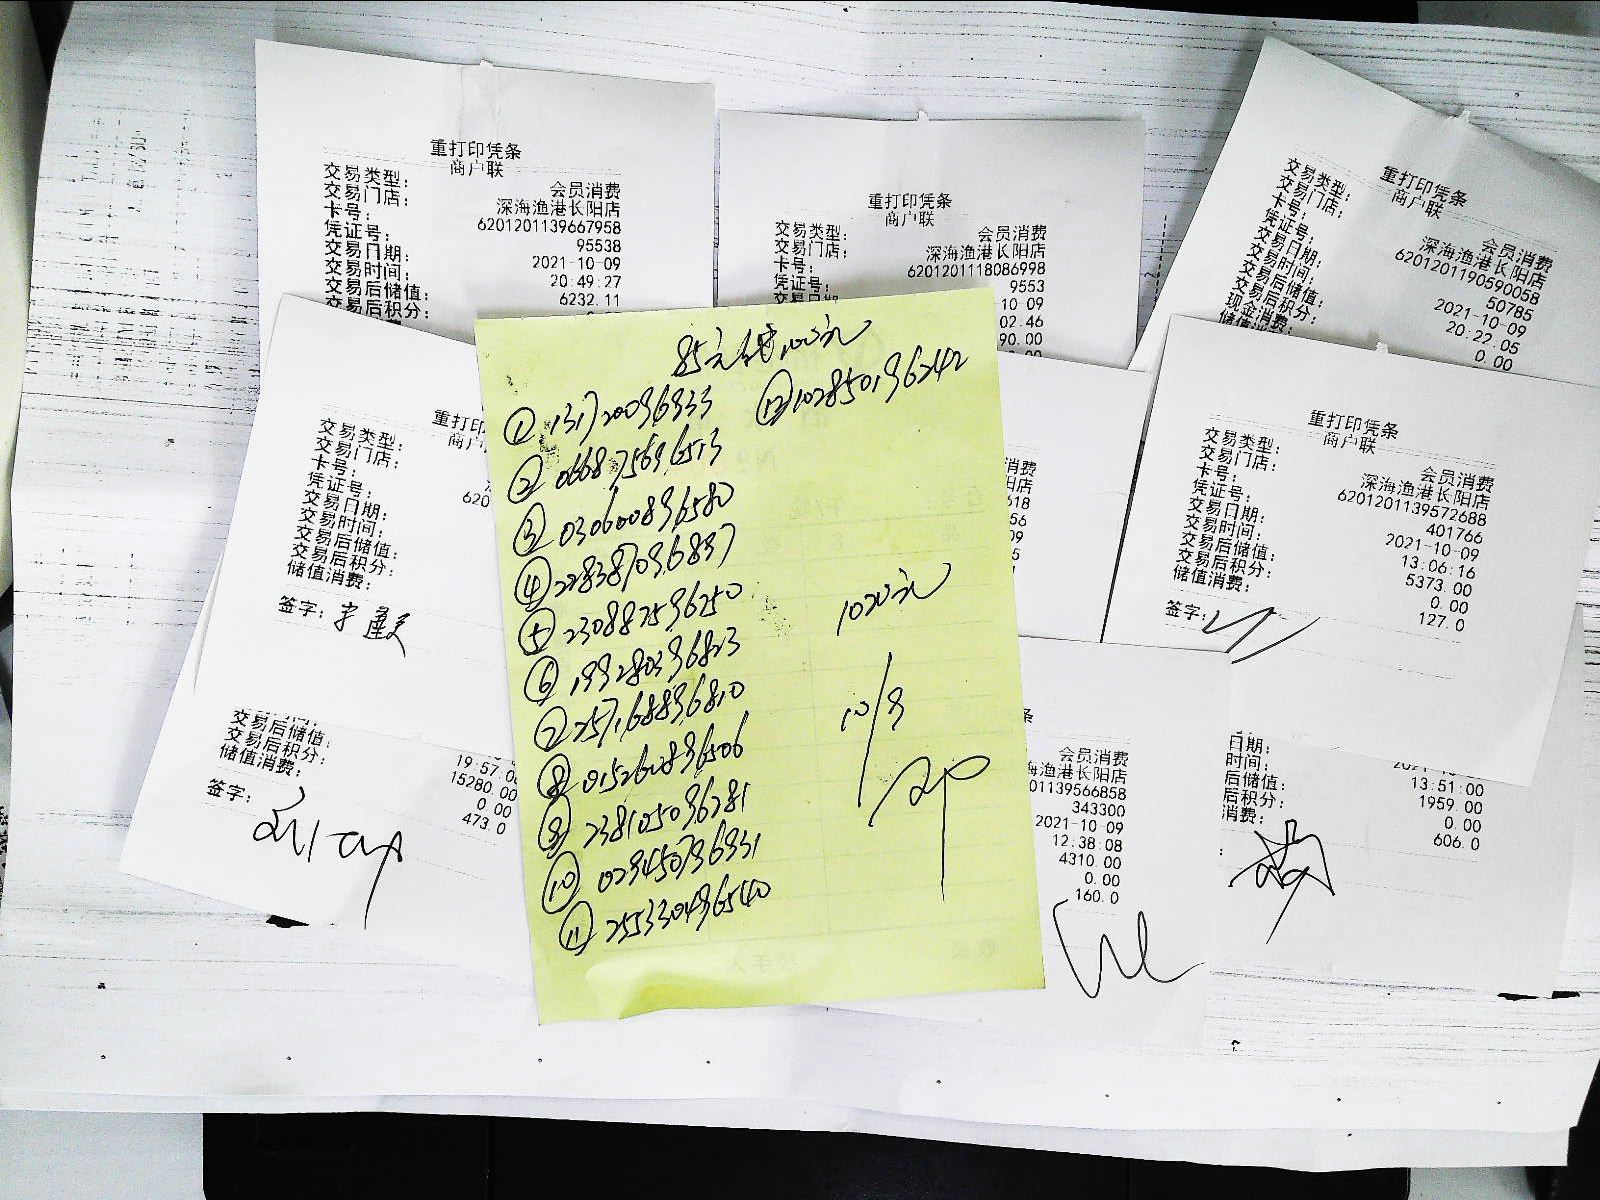 重打印凭条
商户联
交易类型: 会员消费
交易门店: 深海渔港长阳店
卡号: 6201201139667958
凭证号: 95538
交易日期: 2021-10-09
交易时间: 20:49:27
交易后储值: 6232.11
交易后积分:
重打印凭条
商户联
交易类型: 会员消费
交易门店: 深海渔港长阳店
卡号: 6201201118086998
凭证号: 9553
交易日期 10-09
02:46
90.00
重打印凭条
商户联
交易类型: 会员消费
交易门店: 深海渔港长阳店
卡号: 6201201190590058
凭证号: 50785
交易日期: 2021-10-09
交易时间: 20:22:05
交易后储值: 0.00
交易后积分:
现金消费:
85元储100元
① 131720096933
② 066875696513
③ 030600896580
④ 228387096897
⑤ 230882596250
⑥ 199280396823
⑦ 257168896810
⑧ 015260896506
⑨ 238105096281
⑩ 029450796931
⑪ 255330496540
⑫ 102850196242
1020元
10/9
重打印凭
商户
交易类型:
交易门店:
卡号: 620
凭证号:
交易日期:
交易时间:
交易后储值:
交易后积分:
储值消费:
签字:
交易后储值:
交易后积分:
储值消费:
19:57:0
15280.00
0.00
473.0
签字:
消费
阳店
618
56
09
重打印凭条
商户联
交易类型: 会员消费
交易门店: 深海渔港长阳店
卡号: 6201201139572688
凭证号: 401766
交易日期: 2021-10-09
交易时间: 13:06:16
交易后储值: 5373.00
交易后积分: 0.00
储值消费: 127.0
签字:
条
会员消费
海渔港长阳店
01139566858
343300
2021-10-09
12:38:08
4310.00
0.00
160.0
日期:
时间: 13:51:00
后储值: 1959.00
后积分: 0.00
消费: 606.0